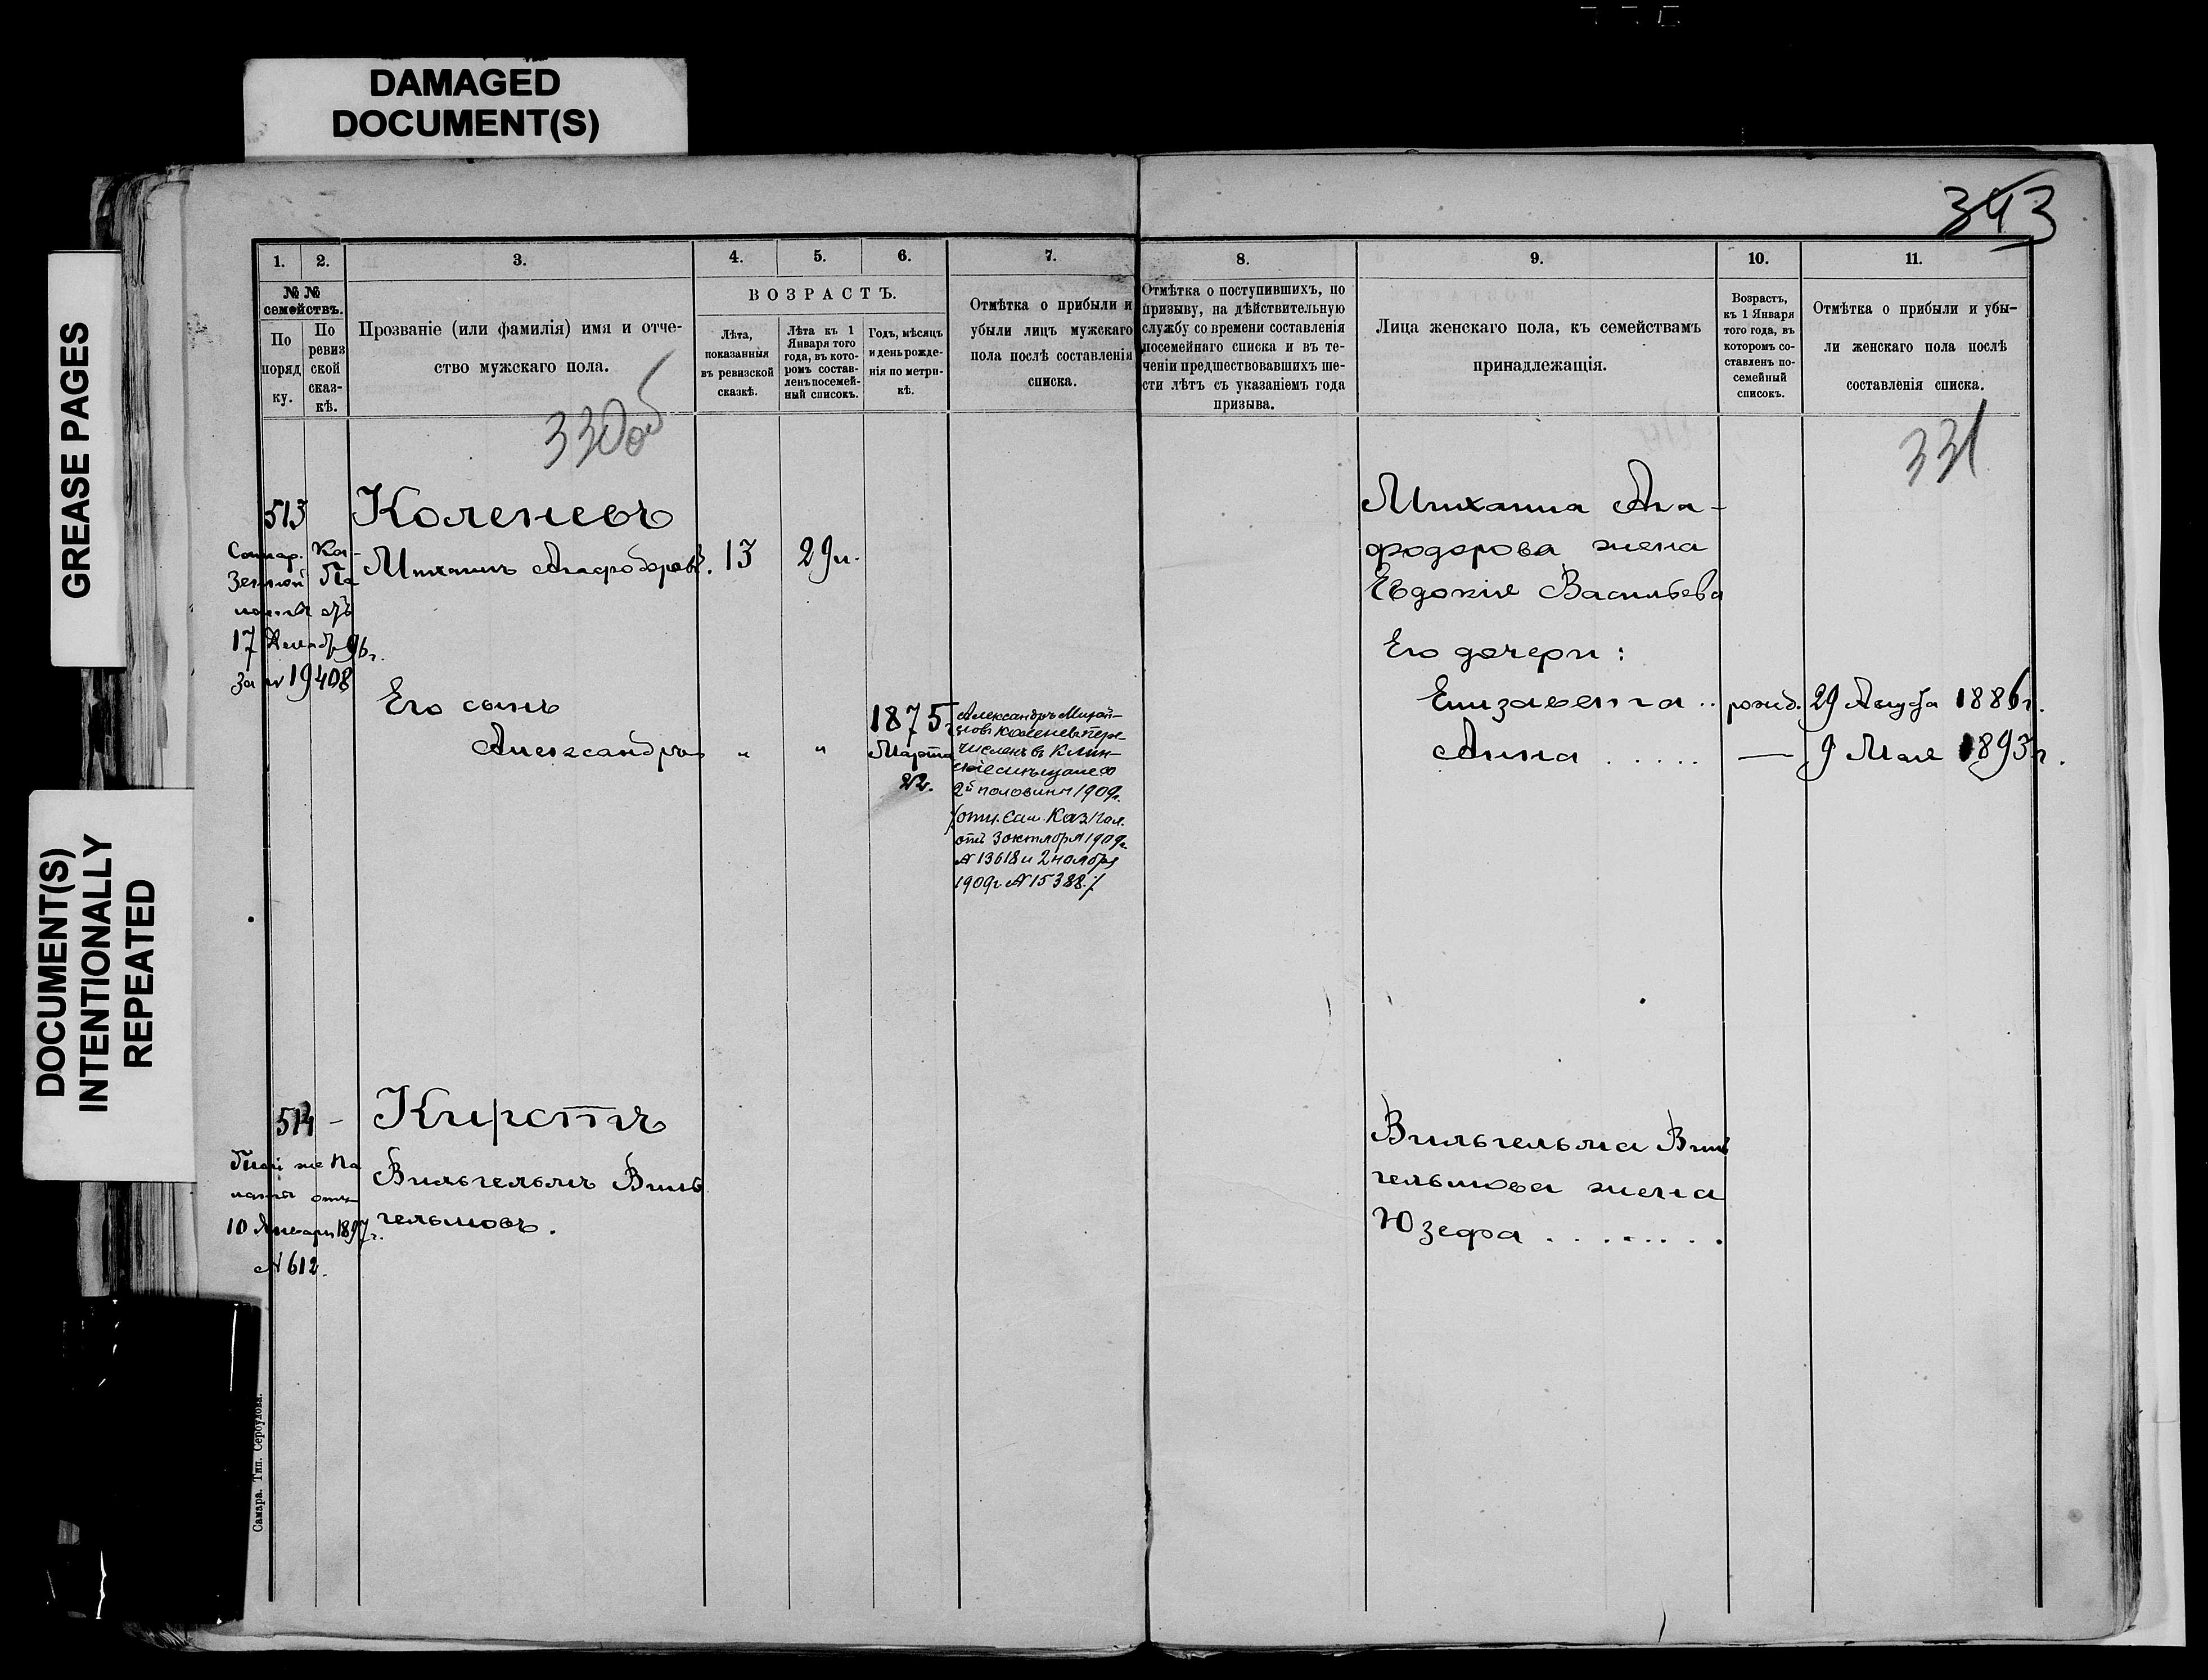 DAMAGED
DOCUMENT(S)
GREASE PAGES
DOCUMENT(S)
INTENTIONALLY
REPEATED
343
1.
2.
3.
4.
5.
6.
7.
8.
9.
10.
11.
№ №
семействъ.
По
поряд
ку.
По
ревиз
ской
сказ-
кѣ.
Прозваніе (или фамилія) имя и отче-
ство мужскаго пола.
ВОЗРАСТЪ.
Лѣта,
показанныя
въ ревизской
сказкѣ.
Лѣта къ 1
Января того
года, въ кото-
ромъ состав-
ленъ посемей-
ный списокъ.
Годъ, мѣсяцъ
и день рожде-
нія по метри-
кѣ.
Отмѣтка о прибыли и
убыли лицъ мужскаго
пола послѣ составленія
списка.
Отмѣтка о поступившихъ, по
призыву, на дѣйствительную
службу со времени составленія
посемейнаго списка и въ те-
ченіи предшествовавшихъ ше-
сти лѣтъ съ указаніемъ года
призыва.
Лица женскаго пола, къ семействамъ
принадлежащія.
Возрастъ,
къ 1 Января
того года, въ
которомъ со-
ставленъ по-
семейный
списокъ.
Отмѣтка о прибыли и убы-
ли женскаго пола послѣ
составленія списка.
330об
331
513
Самар. Ка-
зенной Па
латы отъ
17 Декабр 96 г.
за № 19408
Коленевъ
Михаилъ Агафодоровъ. 13 29 л.
Его сынъ
Александръ " "
1875 г.
Марта
22.
Александръ Михай-
ловъ Коленевъ пере-
численъ въ Клин-
2й половины 1909 г.
/отн. Сам. Каз. Пал.
отъ 3 октября 1909 г.
№ 13618 и 2 ноября
1909 г. № 15388./
Михаила Ага-
фодорова жена
Евдокія Васильева
Его дочери:
Елизавета .. рожд. 29 Августа 1886 г.
Анна ..... — 9 Мая 1893 г.
514 -
Той же Па
латы отъ
10 Января 1897 г.
№ 612.
Кирстъ
Вильгельмъ Виль
гельмовъ.
Вильгельма Виль
гельмова жена
Юзефа ........
Самара. Тип. Сербулова.